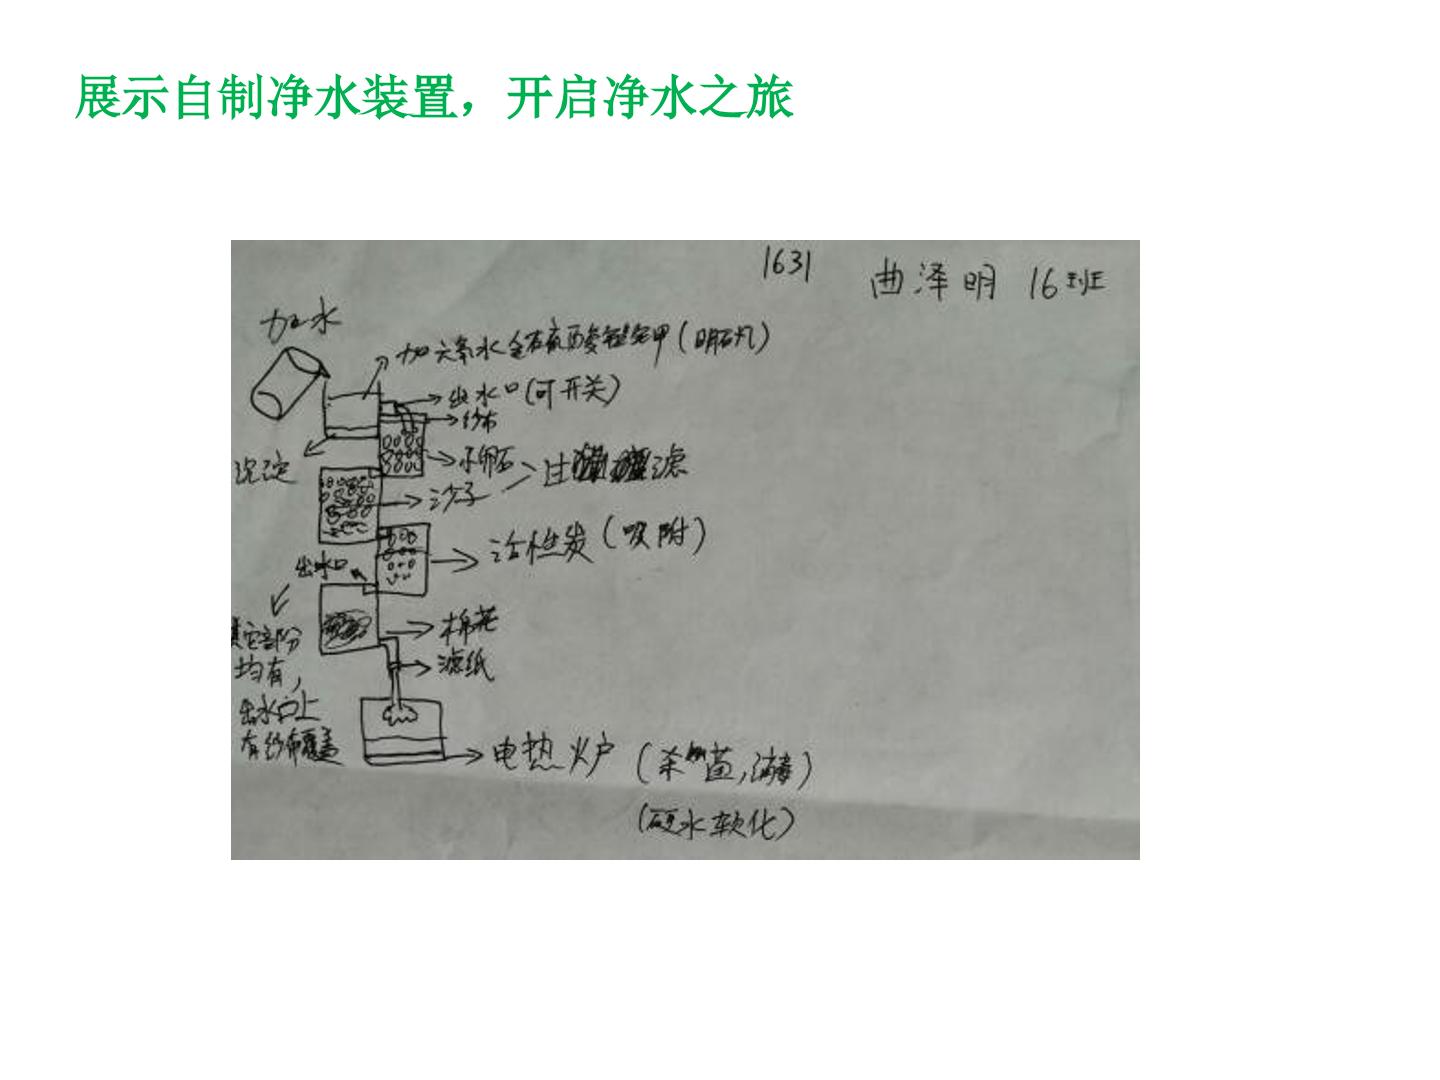 展示自制净水装置，开启净水之旅
1631 曲泽明 16班
加水
加六氯水合硫酸铝钾（明矾）
出水口（可开关）
纱布
沉淀
小卵石
过滤
沙子
活性炭（吸附）
出水口
其它部分
均有，
出水口上
有纱布覆盖
棉花
滤纸
电热火炉（杀菌，消毒）
（硬水软化）